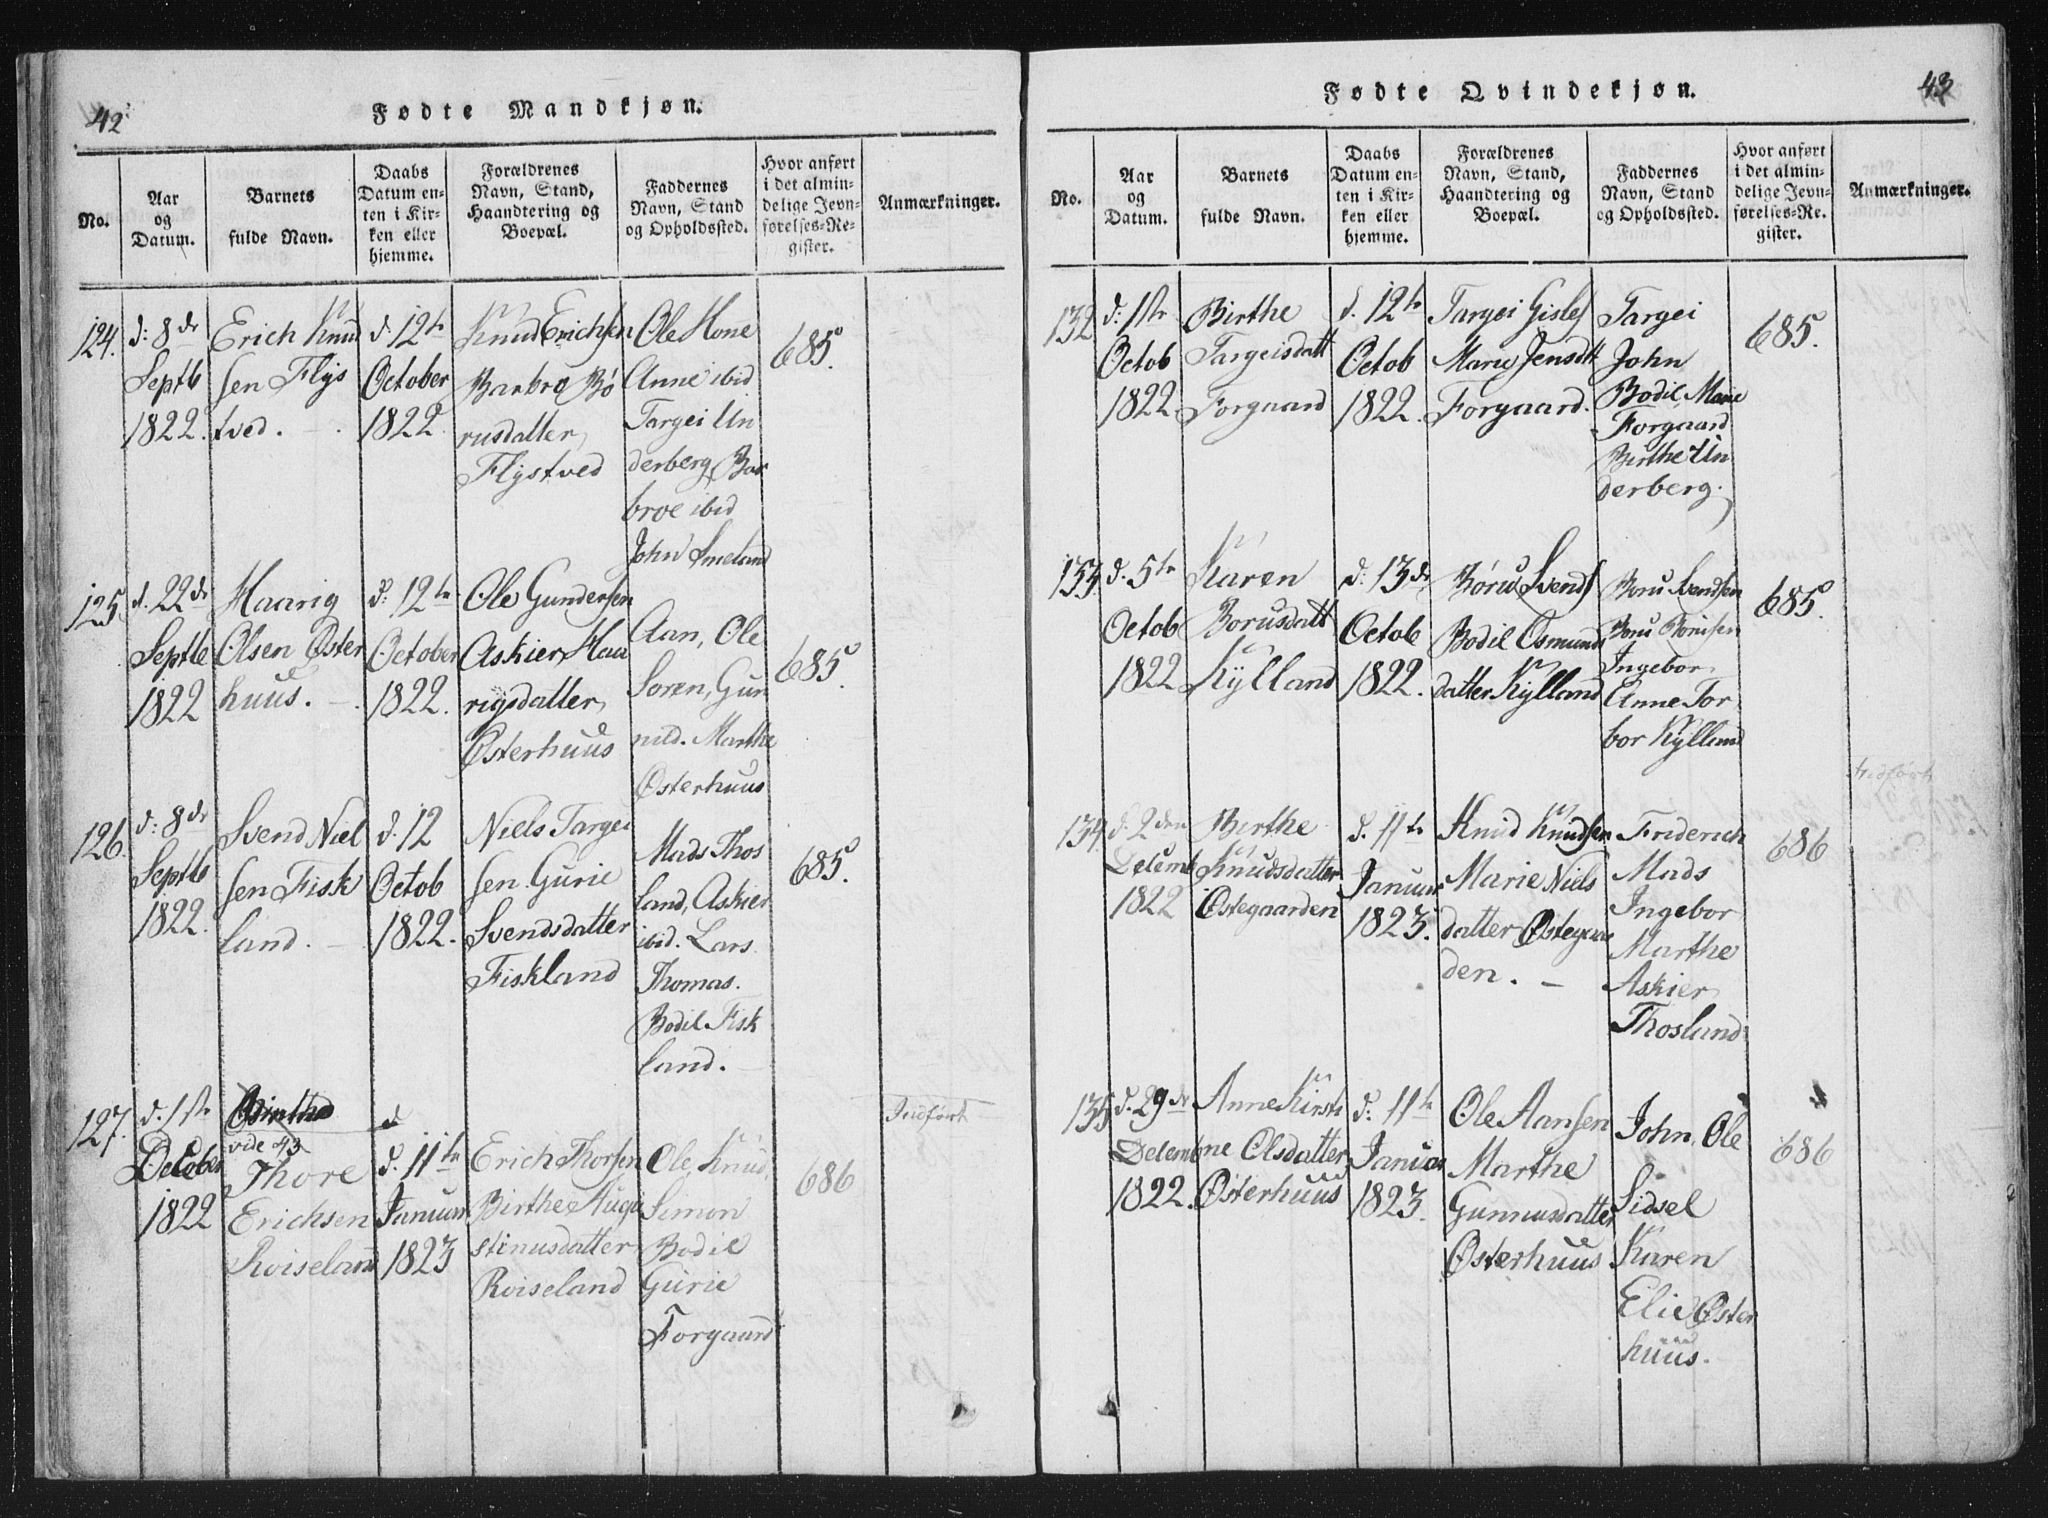 42
Fødte Mandkjøn.
No.
Aar
og
Datum.
Barnets
fulde Navn.
Daabs
Datum en-
ten i Kir-
ken eller
hjemme.
Forældrenes
Navn, Stand,
Haandtering og
Boepæl.
Faddernes
Navn, Stand
og Opholdssted.
Hvor anført
i det almin-
delige Jevn-
førelses-Re-
gister.
Anmærkninger.
124.
d: 8de
Septb
1822.
Erich Knud
sen Flys
tved.
d. 12te
October
1822
Knud Erichsen
Barbro Bø
rusdatter
Flystved
Ole Hone
Anne ibid
Targei Un
derberg, Bar
broe ibid
John Smeland
685.
125.
d. 22de
Septb
1822
Haarig
Olsen Øster
huus.
d: 12te
October
1822.
Ole Gundersen
Askier Haa
rigsdatter
Østerhuus
Aan, Ole
Soren, Gun
nild. Marthe
Østerhuus
685.
126.
d: 8de
Septb
1822.
Svend Niel
sen Fisk
land.
d. 12
Octob
1822.
Niels Targei
sen Gurie
Svendsdatter
Fiskland
Mads Thos
land, Askier
ibid. Lars
Thomas.
Bodil Fisk
land.
685.
127.
d. 1ste
October
1822
Birthe
vide 43
Thore
Erichsen
Roiseland
d
d. 11te
Januar
1823
Erich Thorsen
Birthe Augu
stinusdatter
Roiseland
Ole, Knud,
Simon
Bodil
Gurie
Forgaard
686
Indført
43
Fødte Qvindekjøn.
No.
Aar
og
Datum.
Barnets
fulde Navn.
Daabs
Datum en-
ten i Kir-
ken eller
hjemme.
Forældrenes
Navn, Stand,
Haandtering og
Boepæl.
Faddernes
Navn, Stand
og Opholdssted.
Hvor anført
i det almin-
delige Jevn-
førelses-Re-
gister.
Anmærkninger.
132
d: 1ste
Octob
1822
Birthe
Targeisdatt
Forgaard
d. 12te
Octob
1822.
Targei Gisles
Marie Jensdtt
Forgaard.
Targei
John
Bodil, Marie
Forgaard
Birthe Un
derberg.
685.
133
d. 5te
Octob
1822
Karen
Borusdatt
Kylland
d: 13de
Octob
1822.
Børu Svends
Bodil Osmunds
datter Kylland
Boru Svendsen
Boru Borusen
Ingebor
Anne Tor
bor Kylland
685.
134
d. 2den
Decemb
1822
Birthe
Knudsdatter
Østegaarden
d. 11te
Januar
1823.
Knud Knudsen
Marie Niels
datter Østegaar
den.
Friderich
Mads
Ingebor
Marthe
Askier
Thosland
686
Indført
135
d. 29de
Decemb
1822.
Anne Kirsti
ne Olsdatter
Østerhuus
d: 11te
Januar
1823.
Ole Aansen
Marthe
Gunnusdatter
Østerhuus
John, Ole
Sidsel
Karen
Elie Øster
huus.
686